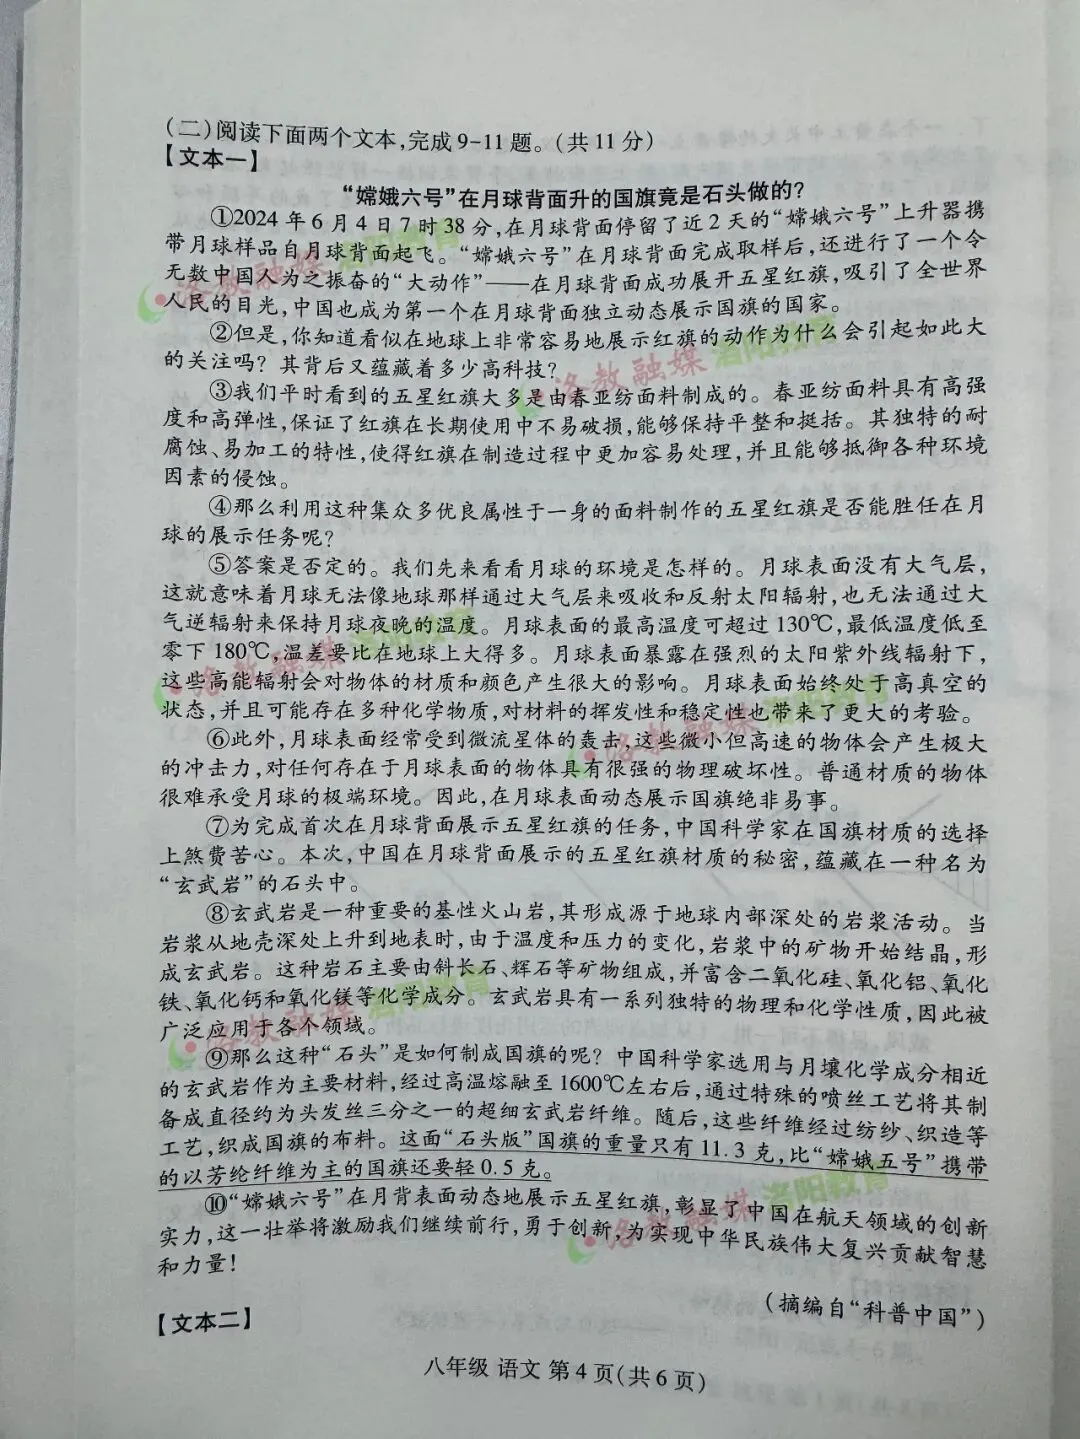 (二)阅读下面两个文本,完成9-11题。(共11分)
【文本一】
“嫦娥六号”在月球背面升的国旗竟是石头做的?
①2024年6月4日7时38分,在月球背面停留了近2天的“嫦娥六号”上升器携
带月球样品自月球背面起飞。“嫦娥六号”在月球背面完成取样后,还进行了一个令
无数中国人为之振奋的“大动作”——在月球背面成功展开五星红旗,吸引了全世界
人民的目光,中国也成为第一个在月球背面独立动态展示国旗的国家。
②但是,你知道看似在地球上非常容易地展示红旗的动作为什么会引起如此大
的关注吗?其背后又蕴藏着多少高科技?
③我们平时看到的五星红旗大多是由春亚纺面料制成的。春亚纺面料具有高强
度和高弹性,保证了红旗在长期使用中不易破损,能够保持平整和挺括。其独特的耐
腐蚀、易加工的特性,使得红旗在制造过程中更加容易处理,并且能够抵御各种环境
因素的侵蚀。
④那么利用这种集众多优良属性于一身的面料制作的五星红旗是否能胜任在月
球的展示任务呢?
⑤答案是否定的。我们先来看看月球的环境是怎样的。月球表面没有大气层,
这就意味着月球无法像地球那样通过大气层来吸收和反射太阳辐射,也无法通过大
气逆辐射来保持月球夜晚的温度。月球表面的最高温度可超过130℃,最低温度低至
零下180℃,温差要比在地球上大得多。月球表面暴露在强烈的太阳紫外线辐射下,
这些高能辐射会对物体的材质和颜色产生很大的影响。月球表面始终处于高真空的
状态,并且可能存在多种化学物质,对材料的挥发性和稳定性也带来了更大的考验。
⑥此外,月球表面经常受到微流星体的轰击,这些微小但高速的物体会产生极大
的冲击力,对任何存在于月球表面的物体具有很强的物理破坏性。普通材质的物体
很难承受月球的极端环境。因此,在月球表面动态展示国旗绝非易事。
⑦为完成首次在月球背面展示五星红旗的任务,中国科学家在国旗材质的选择
上煞费苦心。本次,中国在月球背面展示的五星红旗材质的秘密,蕴藏在一种名为
“玄武岩”的石头中。
⑧玄武岩是一种重要的基性火山岩,其形成源于地球内部深处的岩浆活动。当
岩浆从地壳深处上升到地表时,由于温度和压力的变化,岩浆中的矿物开始结晶,形
成玄武岩。这种岩石主要由斜长石、辉石等矿物组成,并富含二氧化硅、氧化铝、氧化
铁、氧化钙和氧化镁等化学成分。玄武岩具有一系列独特的物理和化学性质,因此被
广泛应用于各个领域。
⑨那么这种“石头”是如何制成国旗的呢?中国科学家选用与月壤化学成分相近
的玄武岩作为主要材料,经过高温熔融至1600℃左右后,通过特殊的喷丝工艺将其制
备成直径约为头发丝三分之一的超细玄武岩纤维。随后,这些纤维经过纺纱、织造等
工艺,织成国旗的布料。这面“石头版”国旗的重量只有11.3克,比“嫦娥五号”携带
的以芳纶纤维为主的国旗还要轻0.5克。
⑩“嫦娥六号”在月背表面动态地展示五星红旗,彰显了中国在航天领域的创新
实力,这一壮举将激励我们继续前行,勇于创新,为实现中华民族伟大复兴贡献智慧
和力量!
(摘编自“科普中国”)
【文本二】
八年级 语文 第4页(共6页)
洛教融媒 洛阳教育
洛教融媒 洛阳教育
洛教融媒 洛阳教育
洛教融媒 洛阳教育
洛教融媒 洛阳教育
洛教融媒 洛阳教育